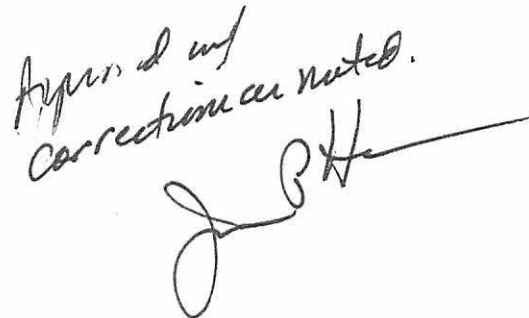 Approved w/
corrections as noted.